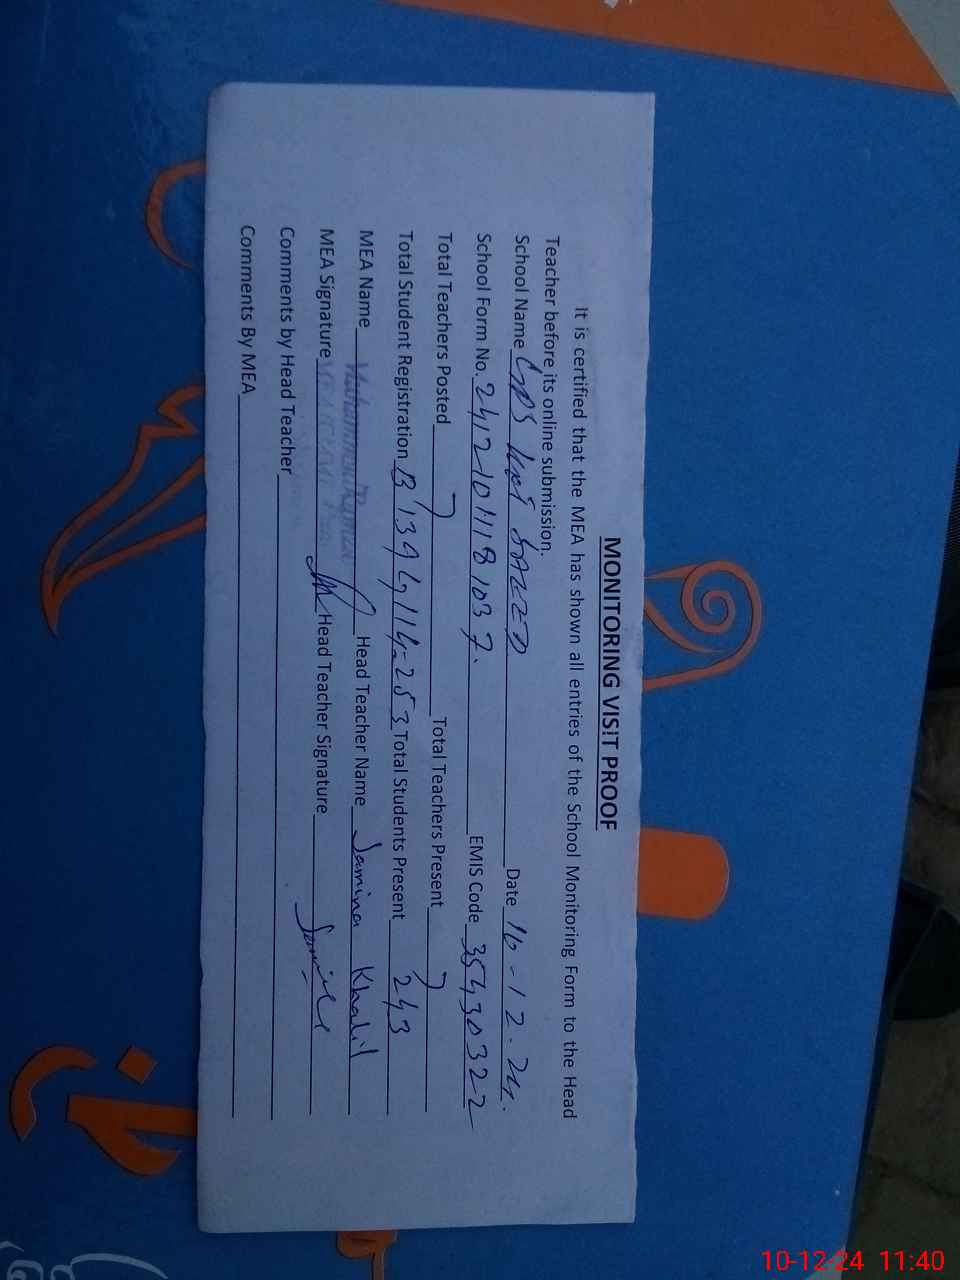 MONITORING VISIT PROOF
It is certified that the MEA has shown all entries of the School Monitoring Form to the Head
Teacher before its online submission.
School Name GPS Date 10-12-24.
School Form No. 24121011181037. EMIS Code 35430322
Total Teachers Posted 7 Total Teachers Present 7
Total Student Registration B 139 G 114-253 Total Students Present 243
MEA Name Head Teacher Name Samina Khalil
MEA Signature Head Teacher Signature
Comments by Head Teacher
Comments By MEA
10-12-24 11:40